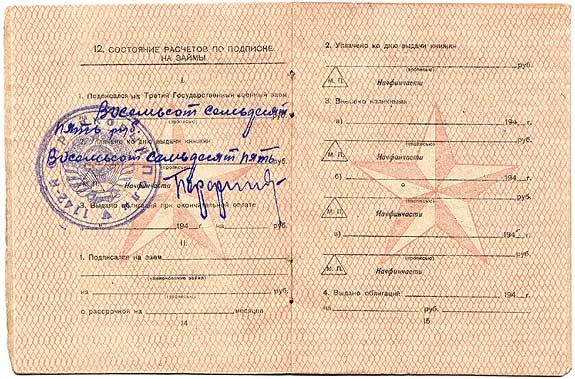 12. СОСТОЯНИЕ РАСЧЕТОВ ПО ПОДПИСКЕ
НА ЗАЙМЫ
I.
1. Подписался на Третий Государственный военный заем
Восемьсот семьдесят
(прописью)
пять руб.
2. Уплачено ко дню выдачи книжки
Восемьсот семьдесят пять
М. П.
Начфинчасти
3. Выдано облигаций при окончательной оплате
194 г. на руб.
II.
1. Подписался на заем
(наименование займа)
на руб.
(прописью)
с рассрочкой на месяцев
14
2. Уплачено ко дню выдачи книжки
руб.
(прописью)
М. П. Начфинчасти
3. Внесено наличными:
а) 194 г.
(прописью)
М. П. Начфинчасти
б) 194 г.
(прописью)
М. П. Начфинчасти
в) 194 г.
(прописью)
М. П. Начфинчасти
4. Выдано облигаций 194 г.
на руб.
15